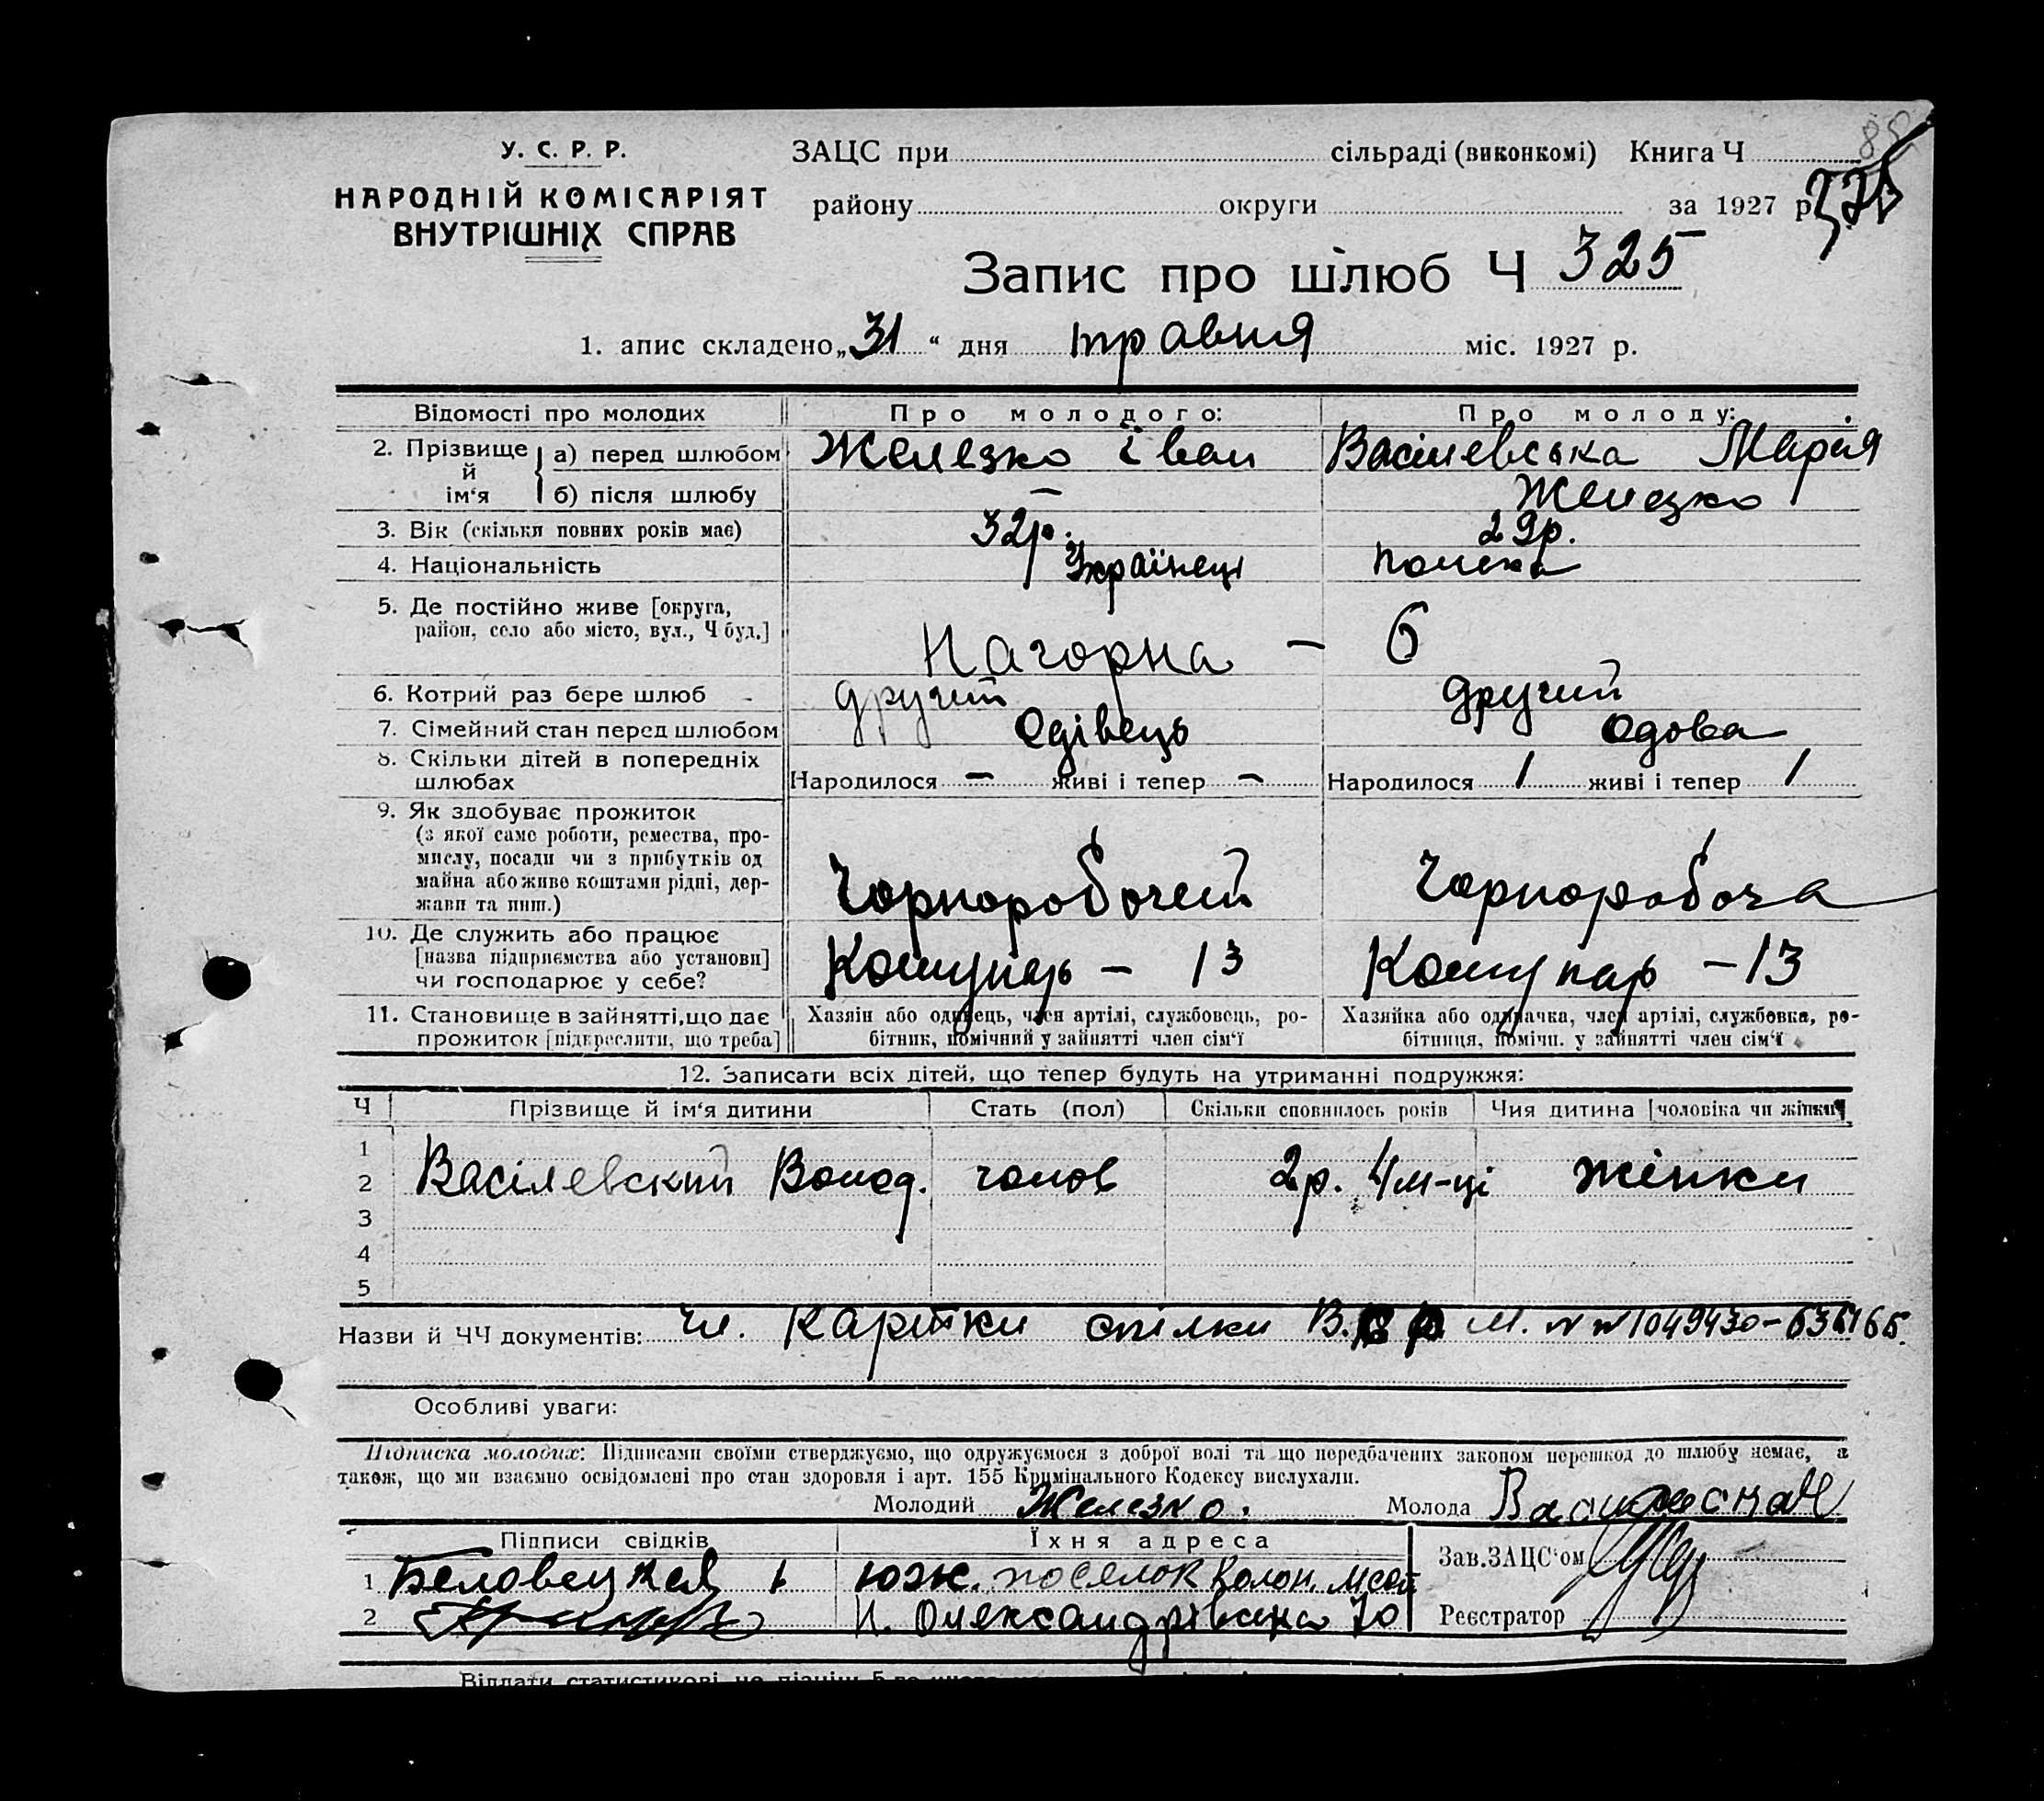 У. С. Р. Р.
НАРОДНІЙ КОМІСАРІЯТ
ВНУТРІШНІХ СПРАВ
ЗАЦС при сільраді (виконкомі) Книга Ч
району округи за 1927 р.
Запис про шлюб Ч 325
1. апис складено „31“ дня травня міс. 1927 р.
Відомості про молодих Про молодого: Про молоду:
2. Прізвище й ім‘я а) перед шлюбом Железко Іван Васілевська Марія
б) після шлюбу — Железко
3. Вік (скільки повних років має) 32р. 29р.
4. Національність Українець полька
5. Де постійно живе [округа,
район, село або місто, вул., Ч буд.] Нагорна — 6
6. Котрий раз бере шлюб другий другий
7. Сімейний стан перед шлюбом Одівець Одова
8. Скільки дітей в попередніх
шлюбах Народилося — живі і тепер — Народилося 1 живі і тепер 1
9. Як здобуває прожиток
(з якої саме роботи, ремества, про-
мислу, посади чи з прибутків од
майна або живе коштами рідні, дер-
жави та инш.) Чорноробочий Чорноробоча
10. Де служить або працює
[назва підприємства або установи]
чи господарює у себе? Комунар — 13 Комунар — 13
11. Становище в зайнятті, що дає
прожиток [підкреслити, що треба]
Хазяїн або одинець, член артілі, службовець, ро-
бітник, помічний у зайнятті член сім‘ї
Хазяйка або одиначка, член артілі, службовка, ро-
бітниця, помічн. у зайнятті член сім‘ї
12. Записати всіх дітей, що тепер будуть на утриманні подружжя:
Ч Прізвище й ім‘я дитини Стать (пол) Скільки сповнилось років Чия дитина [чоловіка чи жінки]
1
2 Васілевский Волод. чолов 2р. 4 м-ці жінки
3
4
5
Назви й ЧЧ документів: чл. картки спілки В. Р. М. № № 1049430-
Особливі уваги:
Підписка молодих: Підписами своїми стверджуємо, що одружуємося з доброї волі та що передбачених законом перешкод до шлюбу немає, а
також, що ми взаємно освідомлені про стан здоровля і арт. 155 Кримінального Кодексу вислухали.
Молодий Железко. Молода
Підписи свідків Їхня адреса
1 Беловецкая юж. поселок Колон.
2 Н. Олександрівська 70
Зав. ЗАЦС‘ом
Реєстратор